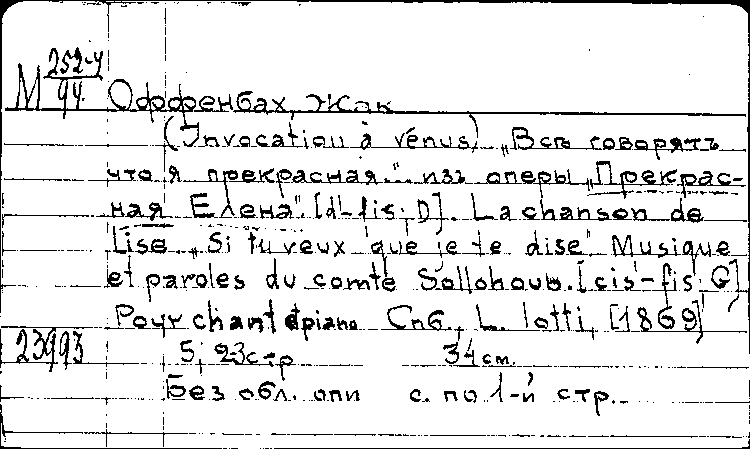 М 252-4/94 Оффенбах, Жак
(Invocation à vénus) „Всѣ говорятъ
что я прекрасная..." изъ оперы „Прекрас-
ная Елена". [d'-fis; D]. La chanson de
Lise „Si tu veux que je te dise". Musique
et paroles du comte Sollohoub. [cis'-fis; G]
Pour chant et piano Спб., L. Iotti, [1869]
23993 5; 23стр 34 см.
Без обл. опис. по 1-й стр.